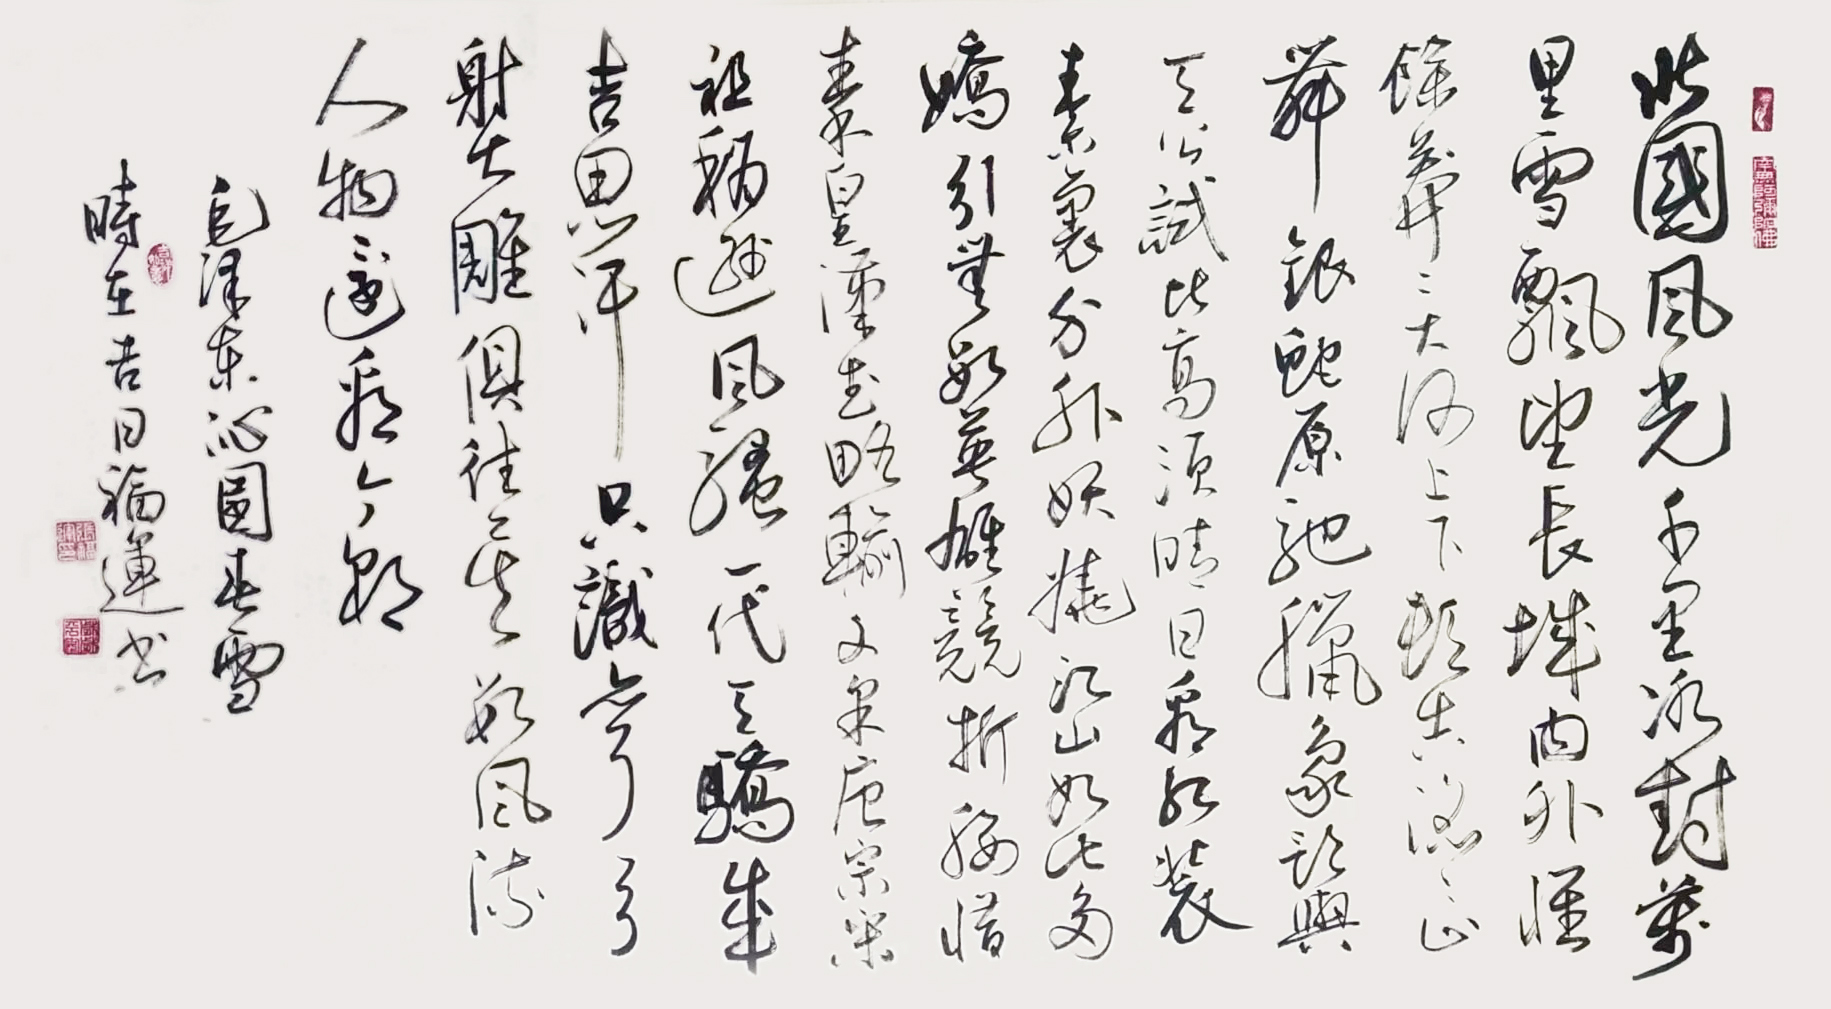 南無阿彌陀佛
北國風光千里冰封萬
里雪飄望長城內外惟
餘莽〻大河上下頓失滔〻山
舞銀蛇原馳臘象欲與
天公試比高須晴日看紅裝
素裹分外妖嬈江山如此多
嬌引無數英雄競折腰惜
秦皇漢武略輸文采唐宗宋
祖稍遜風騷一代天驕成
吉思汗只識彎弓
射大雕俱往矣數風流
人物還看今朝
毛澤東沁園春雪
時在吉日福運书